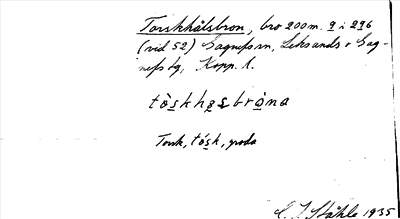 Torskhålsbron, bro 200 m. 9 i 296
(vid 52) Sagnefs sn, Leksands o Gag-
nefs tg, Kopp. l.
tòskhǫsbrὸna
Torsk, tósk, groda
C. I. Ståhle 1935